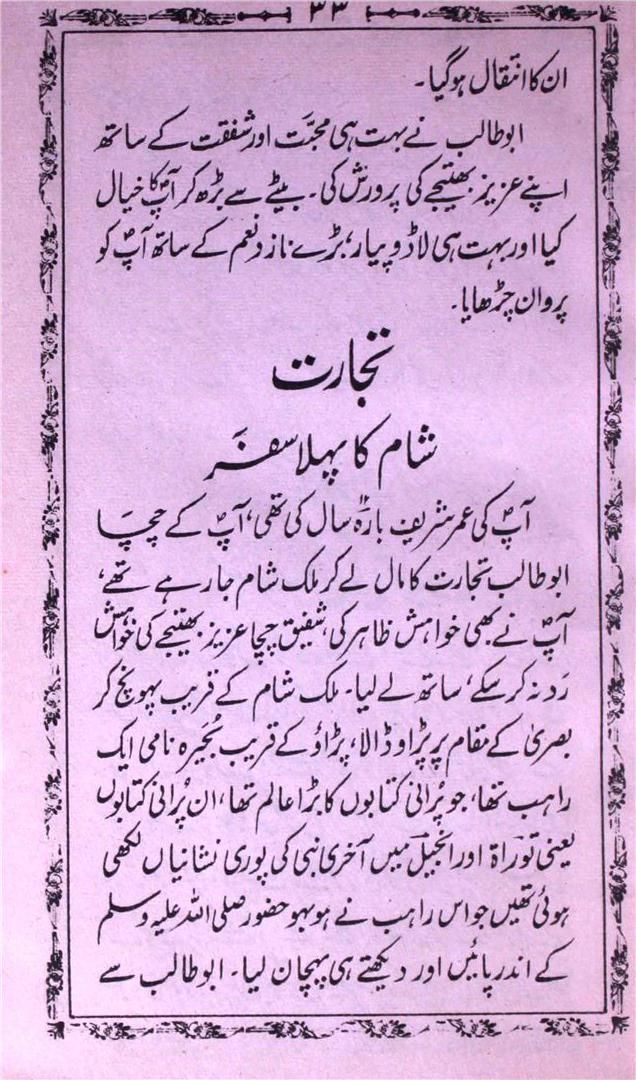 ۳۳
ان کا انتقال ہوگیا۔
ابو طالب نے بہت ہی محبّت اور شفقت کے ساتھ
اپنے عزیز بھتیجے کی پرورش کی۔ بیٹے سے بڑھ کر آپؐ کا خیال
کیا اور بہت ہی لاڈ و پیار، بڑے ناز و نعم کے ساتھ آپؐ کو
پروان چڑھایا۔
تجارت
شام کا پہلا سفر
آپؐ کی عمر شریف بارہ سال کی تھی، آپؐ کے چچا
ابو طالب تجارت کا مال لے کر ملک شام جا رہے تھے،
آپؐ نے بھی خواہش ظاہر کی، شفیق چچا عزیز بھتیجے کی خواہش
رَد نہ کر سکے، ساتھ لے لیا۔ ملک شام کے قریب پہونچ کر
بصریٰ کے مقام پر پڑاو ڈالا، پڑاؤ کے قریب بُحَیرہ نامی ایک
راہب تھا، جو پُرانی کتابوں کا بڑا عالم تھا، ان پُرانی کتابوں
یعنی توراۃ اور انجیل میں آخری نبی کی پوری نشانیاں لکھی
ہوئی تھیں جو اس راہب نے ہو بہو حضور صلی اللہ علیہ وسلم
کے اندر پائیں اور دیکھتے ہی پہچان لیا۔ ابو طالب سے